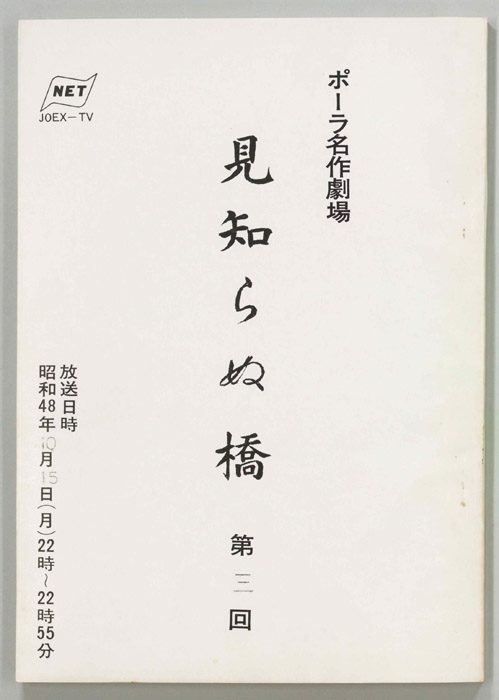 ポーラ名作劇場
見知らぬ橋 第三回
NET
JOEX-TV
放送日時
昭和48年10月15日(月)22時~22時55分